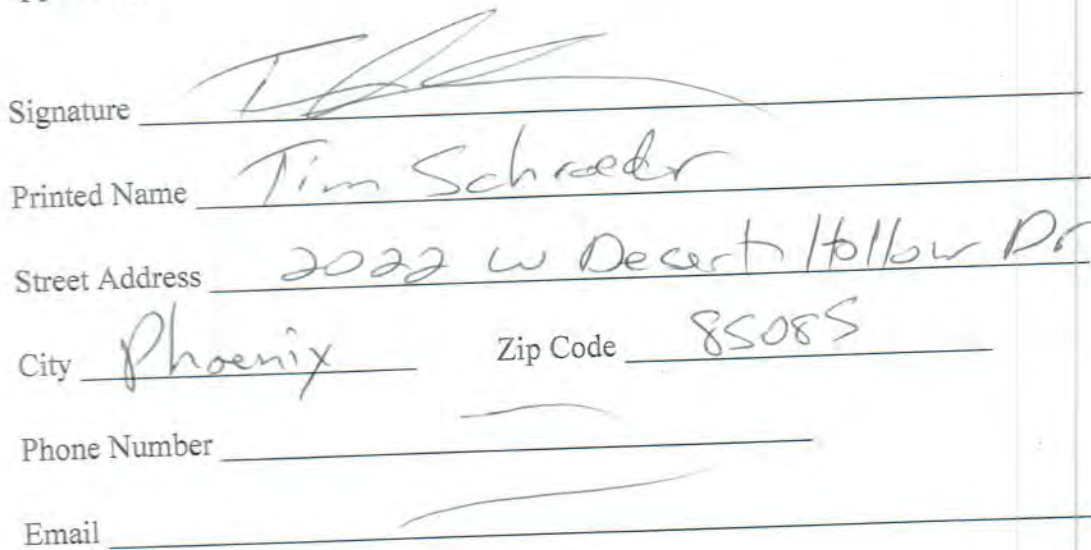 Signature
Printed Name Tim Schroeder
Street Address 2022 W Desert Hollow Dr
City Phoenix Zip Code 85085
Phone Number —
Email —